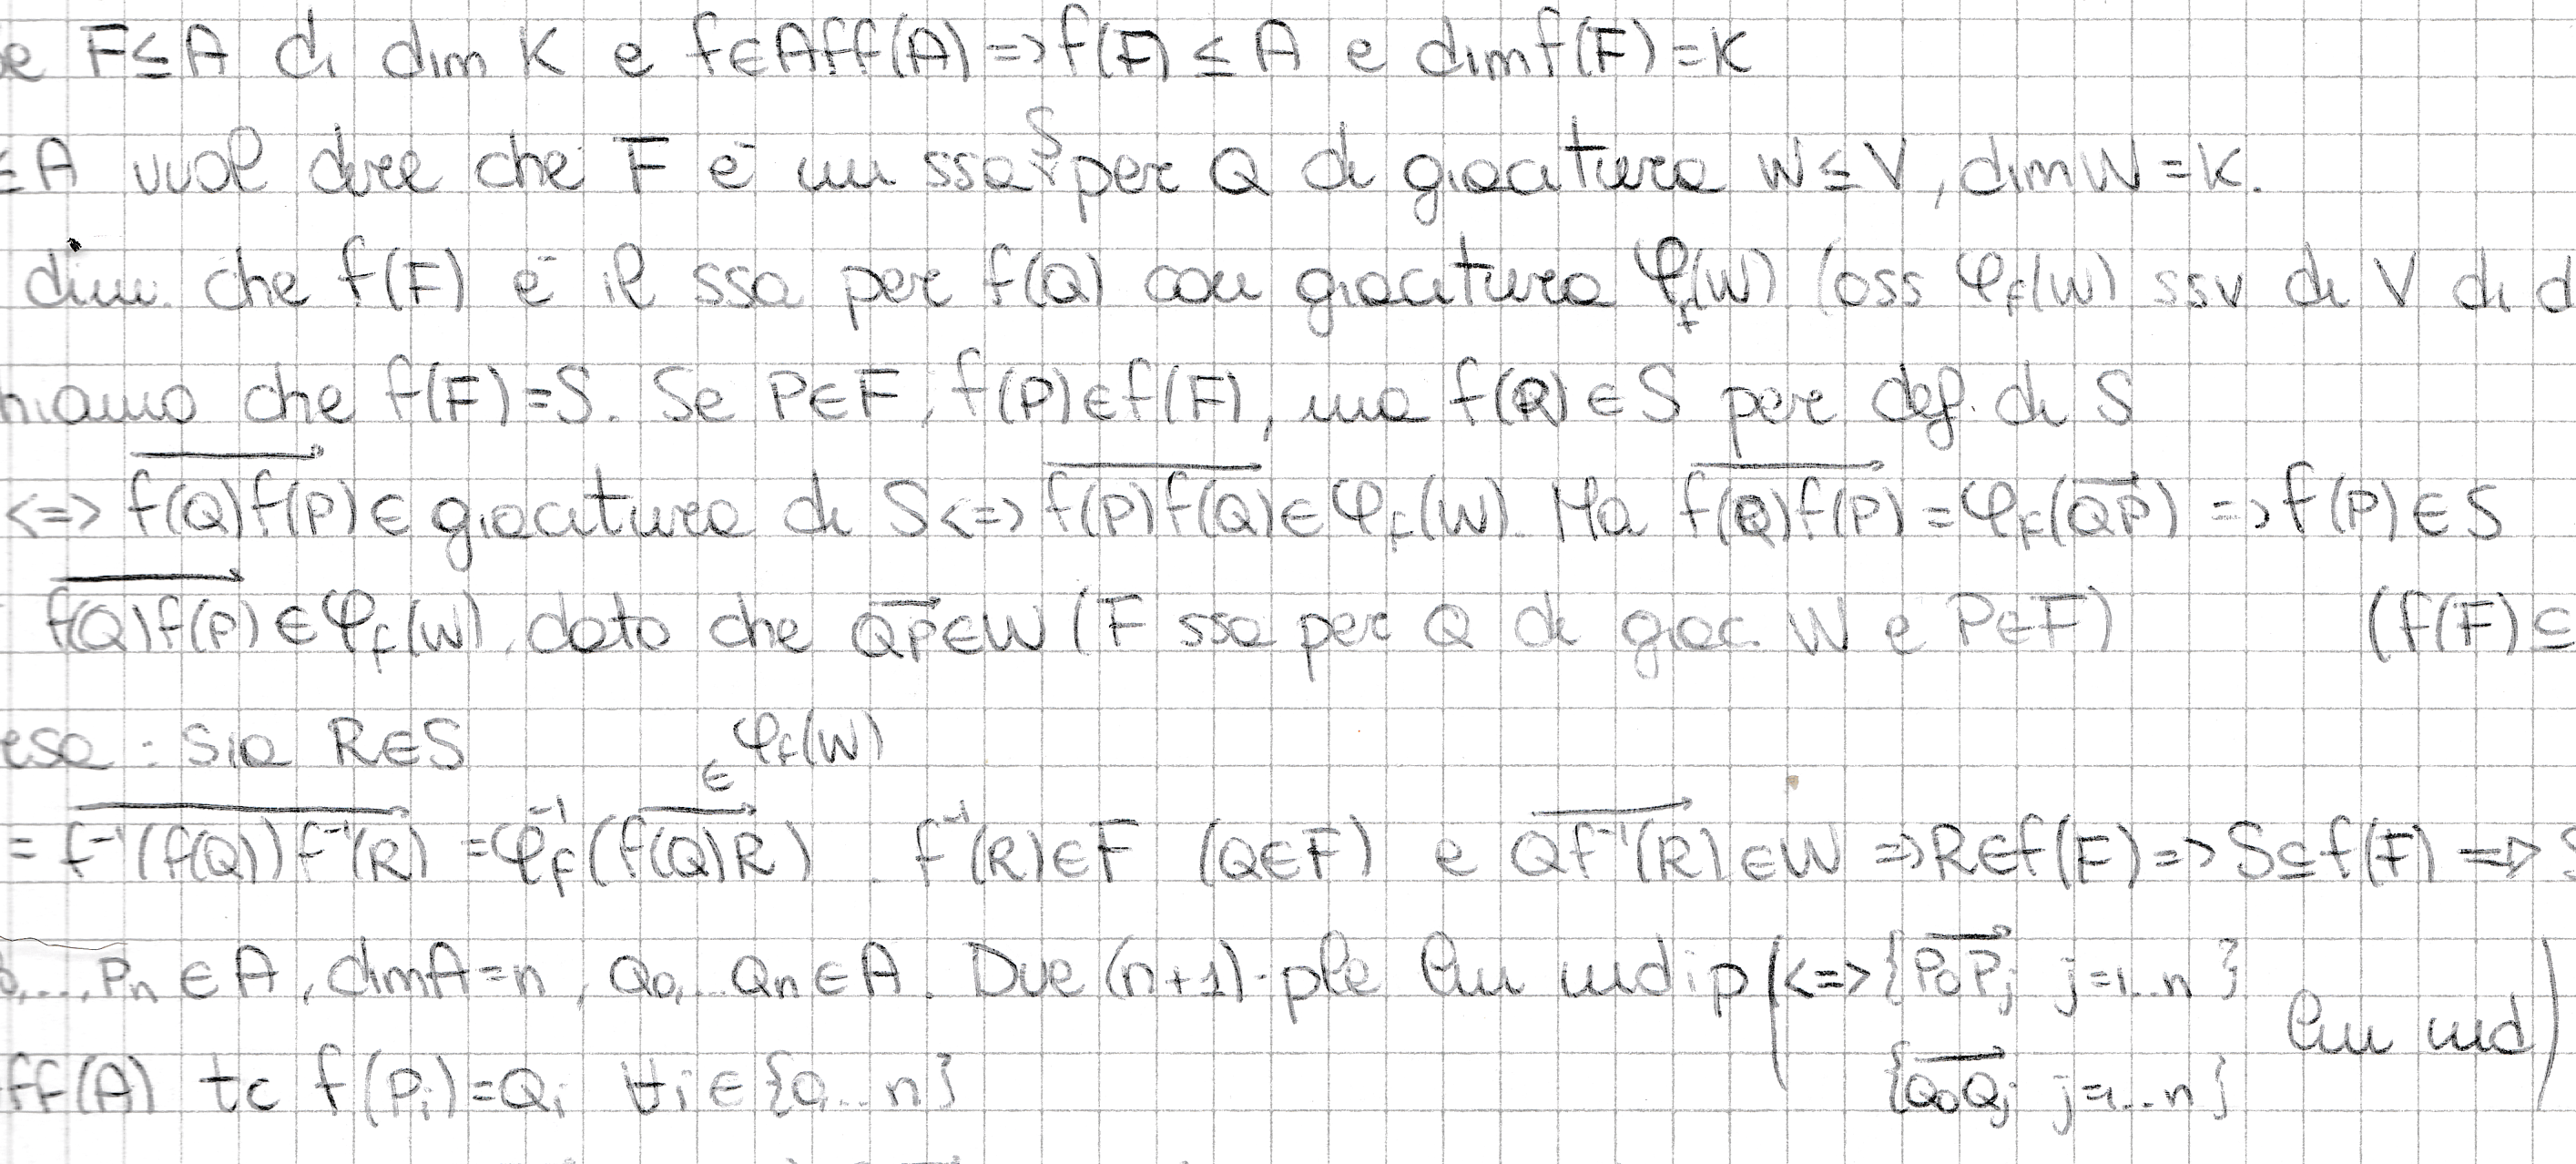 e F≤A di dim K e f∈Aff(A) => f(F) ≤ A e dimf(F)=K
≤A vuol dire che F è un ssa per Q di giacitura W≤V, dimW=K.
S
dim. che f(F) è il ssa per f(Q) con giacitura φ_f(W) (oss φ_f(W) ssv di V di d
niamo che f(F)=S. Se P∈F, f(P)∈f(F), ma f(Q)∈S per def. di S
<=> f(Q)f(P)∈ giacitura di S <=> f(P)f(Q)∈φ_f(W). Ma f(Q)f(P)=φ_f(QP) => f(P)∈S
f(Q)f(P)∈φ_f(W), dato che QP∈W (F ssa per Q di giac. W e P∈F) (f(F)⊆
esa: Sia R∈S
∈ φ_f(W)
= f⁻¹(f(Q))f⁻¹(R) = φ_f⁻¹(f(Q)R). f⁻¹(R)∈F (Q∈F) e Qf⁻¹(R)∈W => R∈f(F) => S⊆f(F) => S
,..., Pn∈A, dimA=n, Q0,...Qn∈A. Due (n+1)-ple lin indip (<=> {P0Pj j=1..n}
{Q0Qj j=1...n} lin ind)
ff(A) tc f(Pi)=Qi ∀i∈{0...n}